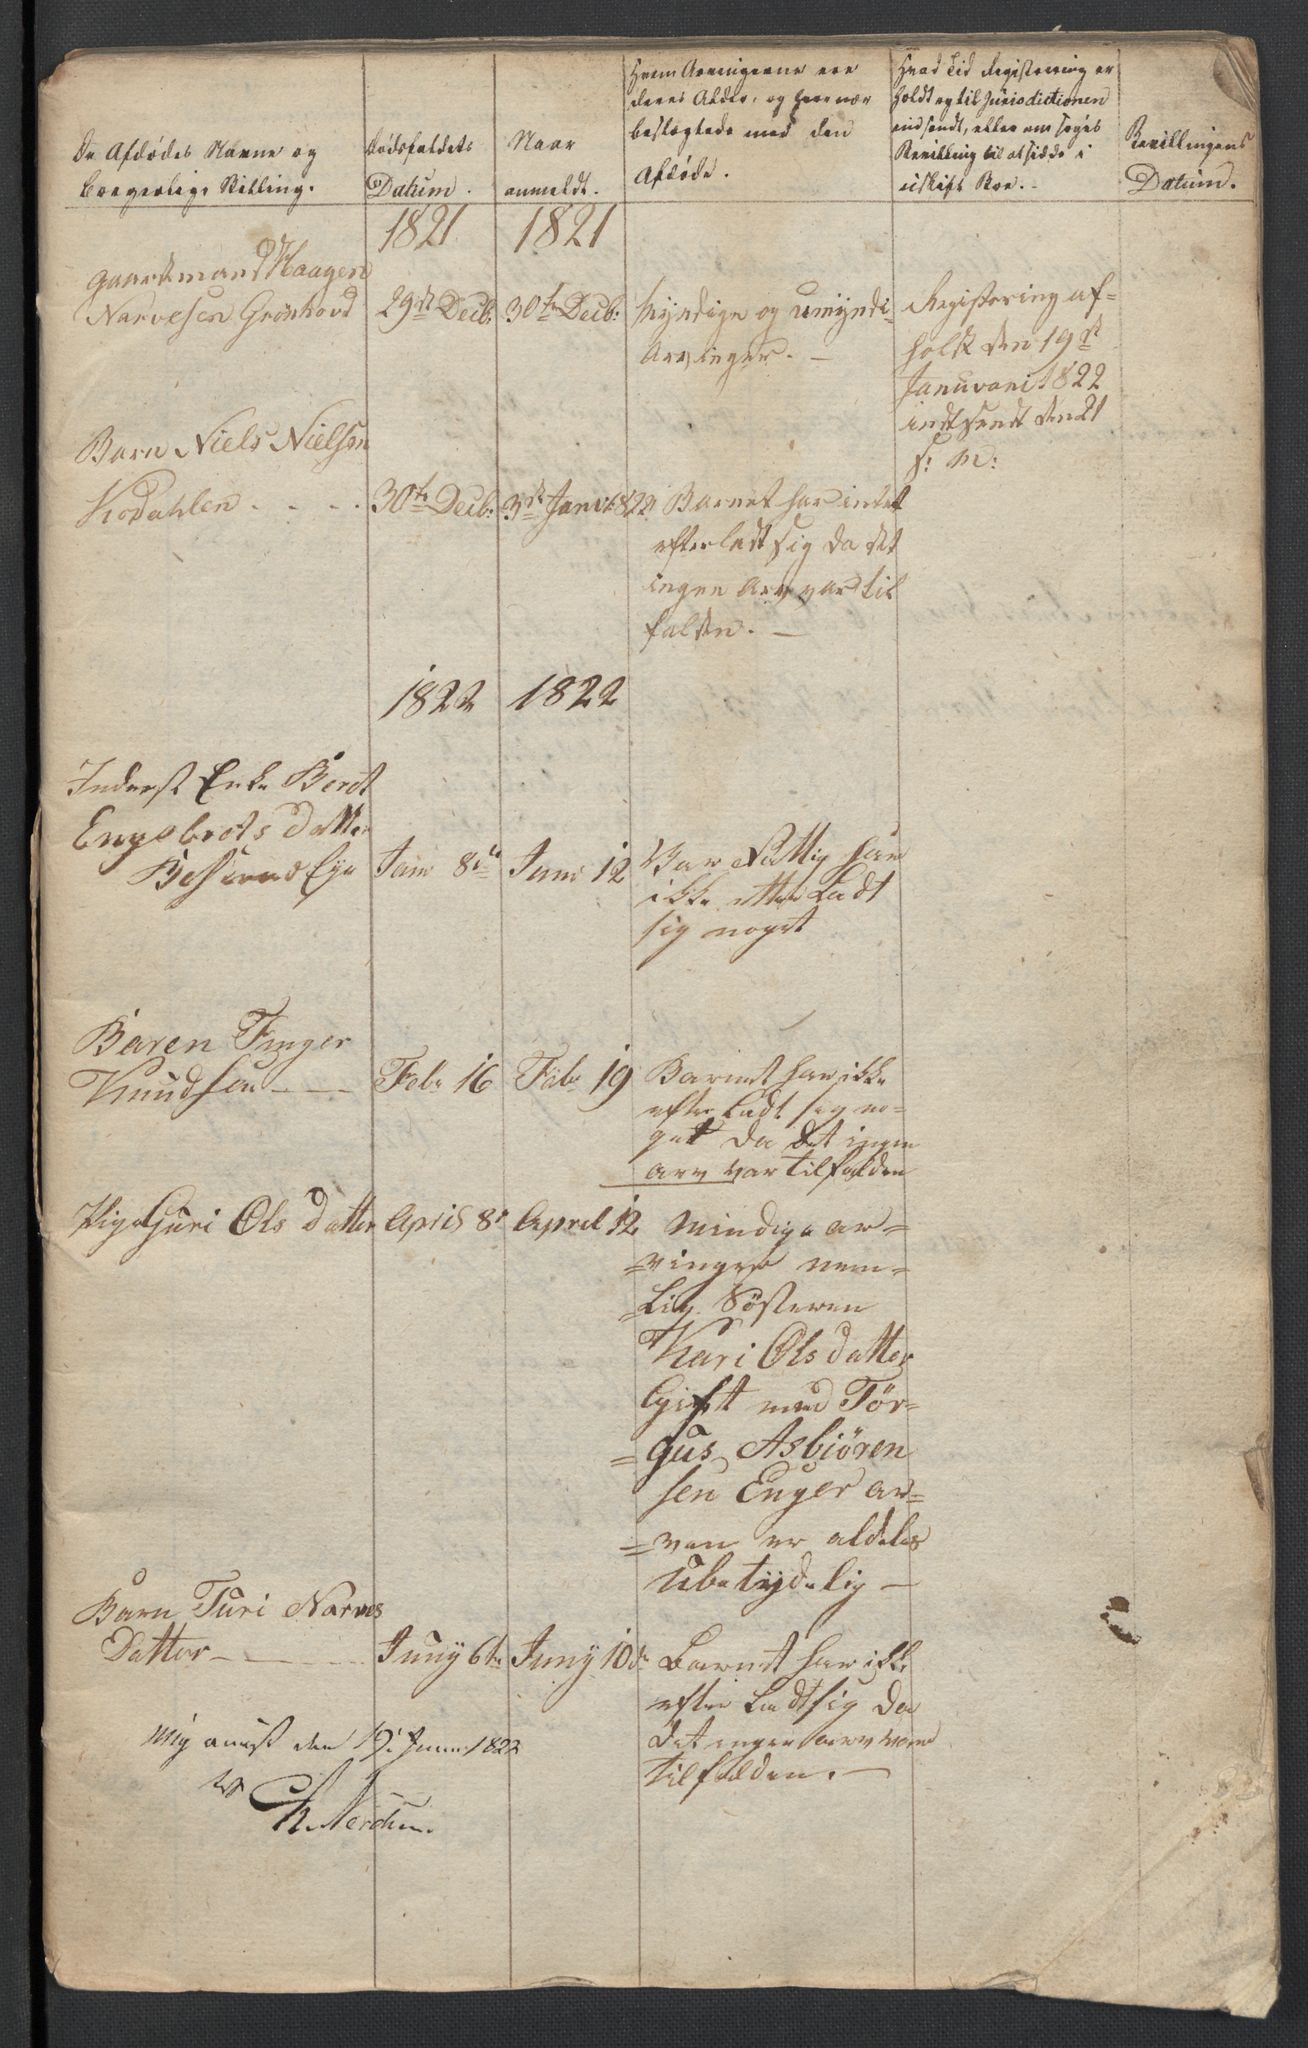 De Afdødes Navne og
borgerlige Stilling.
Dødsfaldets
Datum.
Naar
anmeldt.
Hvem Arvingerne ere
deres Alder, og hvor nær
beslægtede med den
Afdøde.
Hvad Tid Registrering er
holdt og til Jurisdictionen
indsendt, eller om søges
Bevilling til at sidde i
uskift Boe.
Bevillingens
Datum.
1821 1821
Gaardmand Haagen
Narvesen Grønhovd 29de Decb: 30te Decb:
Myndige og Umyndi-
Arvinger. —
Registering af-
holdt den 19de
Januvari 1822
indtsendt den 21
s: m:
Barn Niels Nielsen
Kodahlen . . . . 30te Decb: 3de Janv 1822
Barnet har intet
efterladt sig da det
ingen Arv var til
falden. —
1822 1822
Inderst Enke Beret
Engebrets datter
Eye Jani 8de Jani 12
Var Fattig har
ikke etter Ladt
sig noget
Baren Finger
Knudsen — — Febr 16 Febr 19
Barnet har ikke
efter Ladt sig no-
get da det ingen
arv var tilfalden
Pige Guri Ols datter April 8de April 12
Mindige ar-
=vinger nem=
=Lig Søsteren
Kari Ols datter
Gift med Tør-
=gus Asbiøren
sen Enger ar=
=ven er aldeles
Ubetydelig —
Barn Turi Narves
Datter — — — Juny 6te Juny 10de
Barnet har ikke
efter Ladt sig da
det ingen arv var
tilfalden. —
den 19de Juni 1822